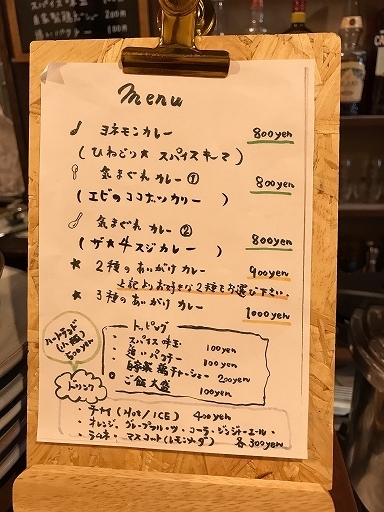 menu
ヨネモンカレー 800yen
(ひねどり★スパイスキーマ)
気まぐれカレー① 800yen
(エビのココナツカリー )
気まぐれカレー②
(ザ★牛スジカレー) 800yen
★ 2種のあいがけカレー 900yen
上記よりお好きな2種をお選び下さい。
★ 3種のあいがけカレー 1000yen
ハートランド
(小瓶)
500yen
トッピング
・スパイス味玉 100yen
・追いパクチー 100yen
・自家製鶏チャーシュー 200yen
ご飯大盛 100yen
ドリンク
・チャイ(HOT/ICE) 400yen
・オレンジ・グレープフルーツ・コーラ・ジンジャーエール・
・ラムネ・マスコット(レモンソーダ) 各300yen